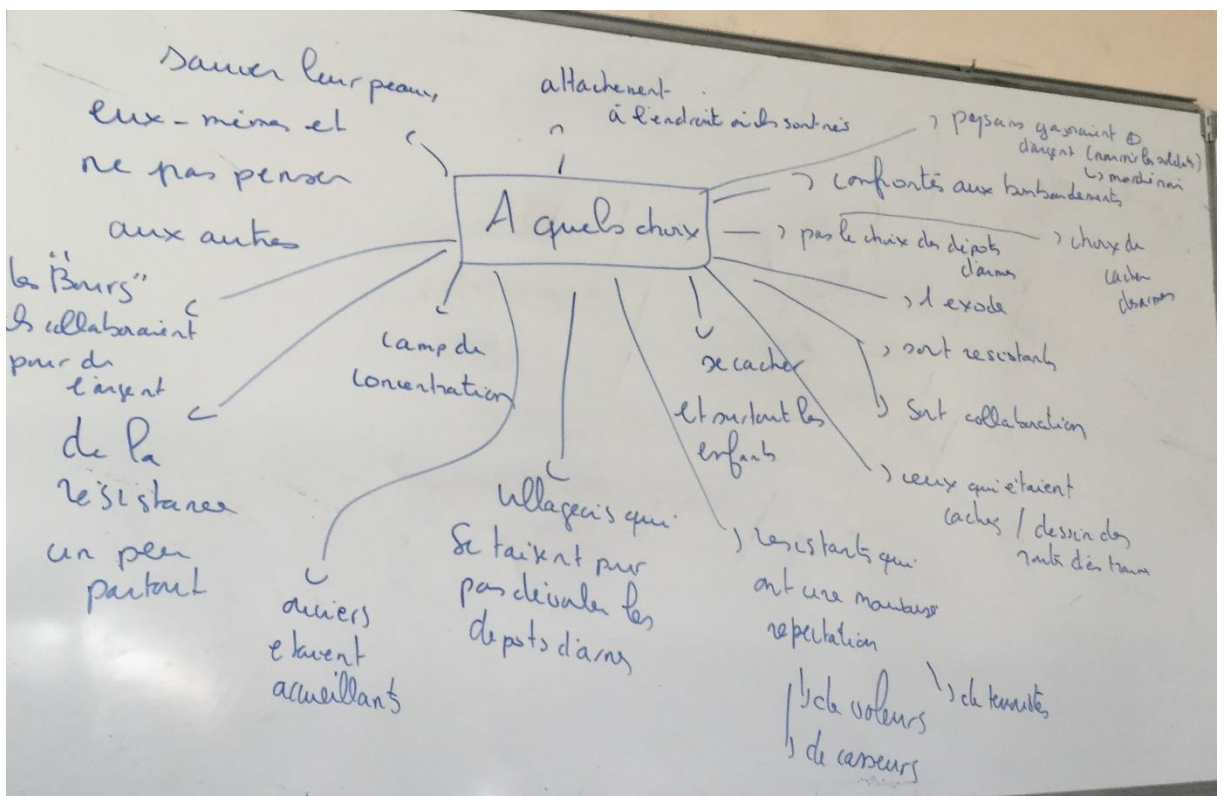 A quels choix
sauver leur peau,
eux-mêmes et
ne pas penser
aux autres
attachement
à l'endroit où ils sont nés
paysans gagnaient ⊕
d'argent (nourrir les soldats)
↳ marché noir
confrontés aux bombardements
pas le choix des dépots
d'armes
choix de
cacher
des armes
l'exode
sont resistants
sont collaboration
ceux qui étaient
cachés / dessin des
se cacher
et surtout les
enfants
resistants qui
ont une mauvaise
reputation
↳ de voleurs
↳ de casseurs
↳ de terroristes
villageois qui
se taisent pur
pas dévoiler les
depots d'arms
etaient
accueillants
camp de
concentration
de la
résistance
un peu
partout
les "Bourg"
ils collaboraient
pour de
l'argent